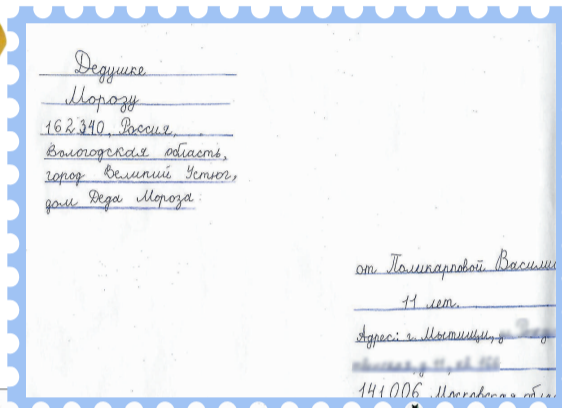 Дедушке
Морозу
162340, Россия,
Вологодская область,
город Великий Устюг,
дом Деда Мороза
от Поликарповой Васили
11 лет.
Адрес: г. Мытищи,
141006 Московская обла